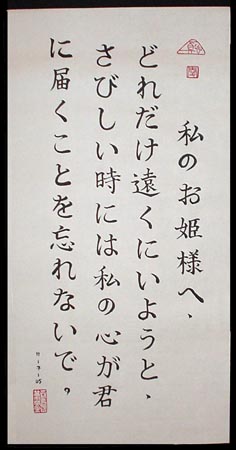 私のお姫様へ、
どれだけ遠くにいようと、
さびしい時には私の心が君
に届くことを忘れないで。